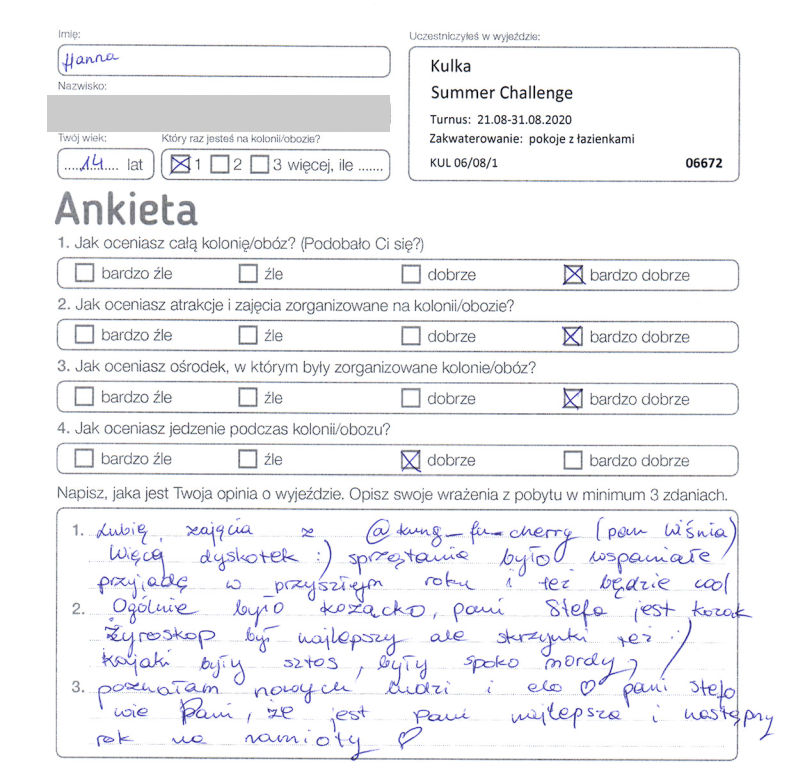 Imię:
Hanna
Nazwisko:
Twój wiek:
14 lat
Który raz jesteś na kolonii/obozie?
1 2 3 więcej, ile .......
Uczestniczyłeś w wyjeździe:
Kulka
Summer Challenge
Turnus: 21.08-31.08.2020
Zakwaterowanie: pokoje z łazienkami
KUL 06/08/1 06672
Ankieta
1. Jak oceniasz całą kolonię/obóz? (Podobało Ci się?)
bardzo źle źle dobrze bardzo dobrze
2. Jak oceniasz atrakcje i zajęcia zorganizowane na kolonii/obozie?
bardzo źle źle dobrze bardzo dobrze
3. Jak oceniasz ośrodek, w którym były zorganizowane kolonie/obóz?
bardzo źle źle dobrze bardzo dobrze
4. Jak oceniasz jedzenie podczas kolonii/obozu?
bardzo źle źle dobrze bardzo dobrze
Napisz, jaka jest Twoja opinia o wyjeździe. Opisz swoje wrażenia z pobytu w minimum 3 zdaniach.
1. Lubię zajęcia z @kung_fu_cherry (pan Wiśnia)
Więcej dyskotek :) sprzątanie było wspaniałe
przyjadę w przyszłym roku i też będzie cool
2. Ogólnie było kozacko, pani Stefa jest kozak
Żyroskop był najlepszy ale skrzynki też :)
kajaki były sztos, były spoko mordy,
3. poznałam nowych ludzi i elo ♡ pani Stefo
wie Pani, że jest pani najlepsza i następny
rok na namioty ♡